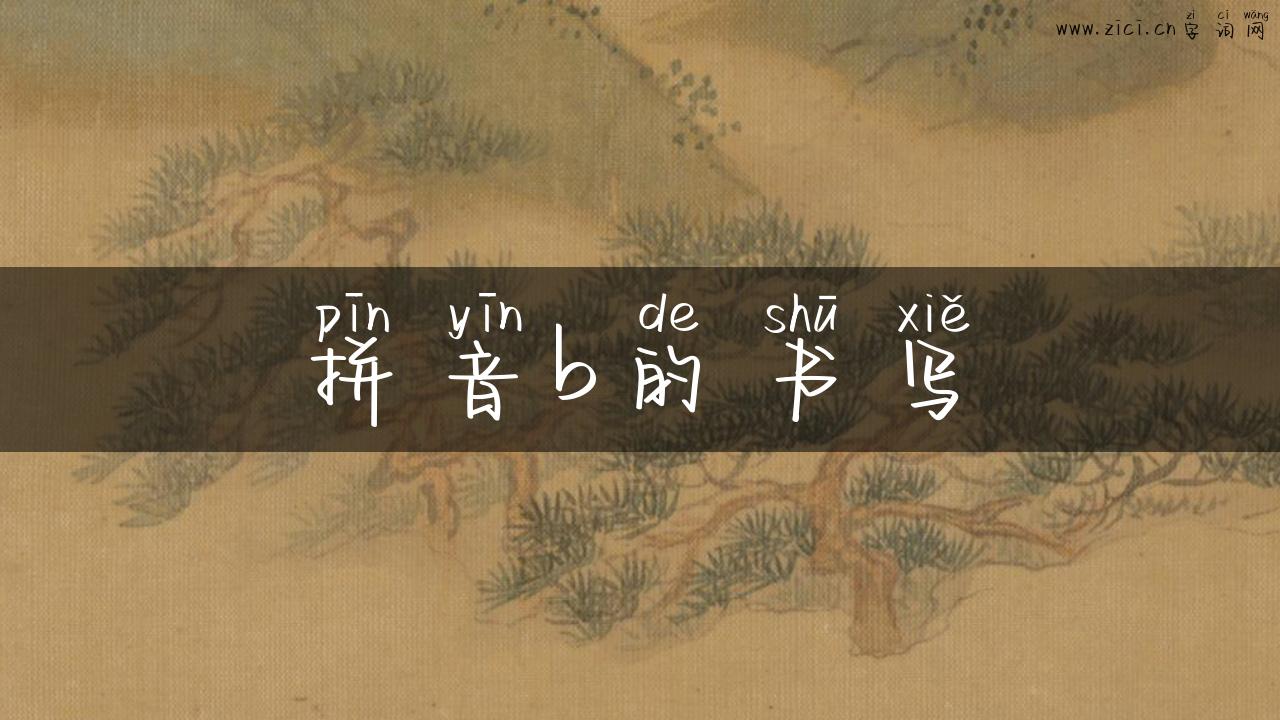 zì cí wǎng
www.zici.cn 字 词 网
pīn yīn de shū xiě
拼 音b的 书 写